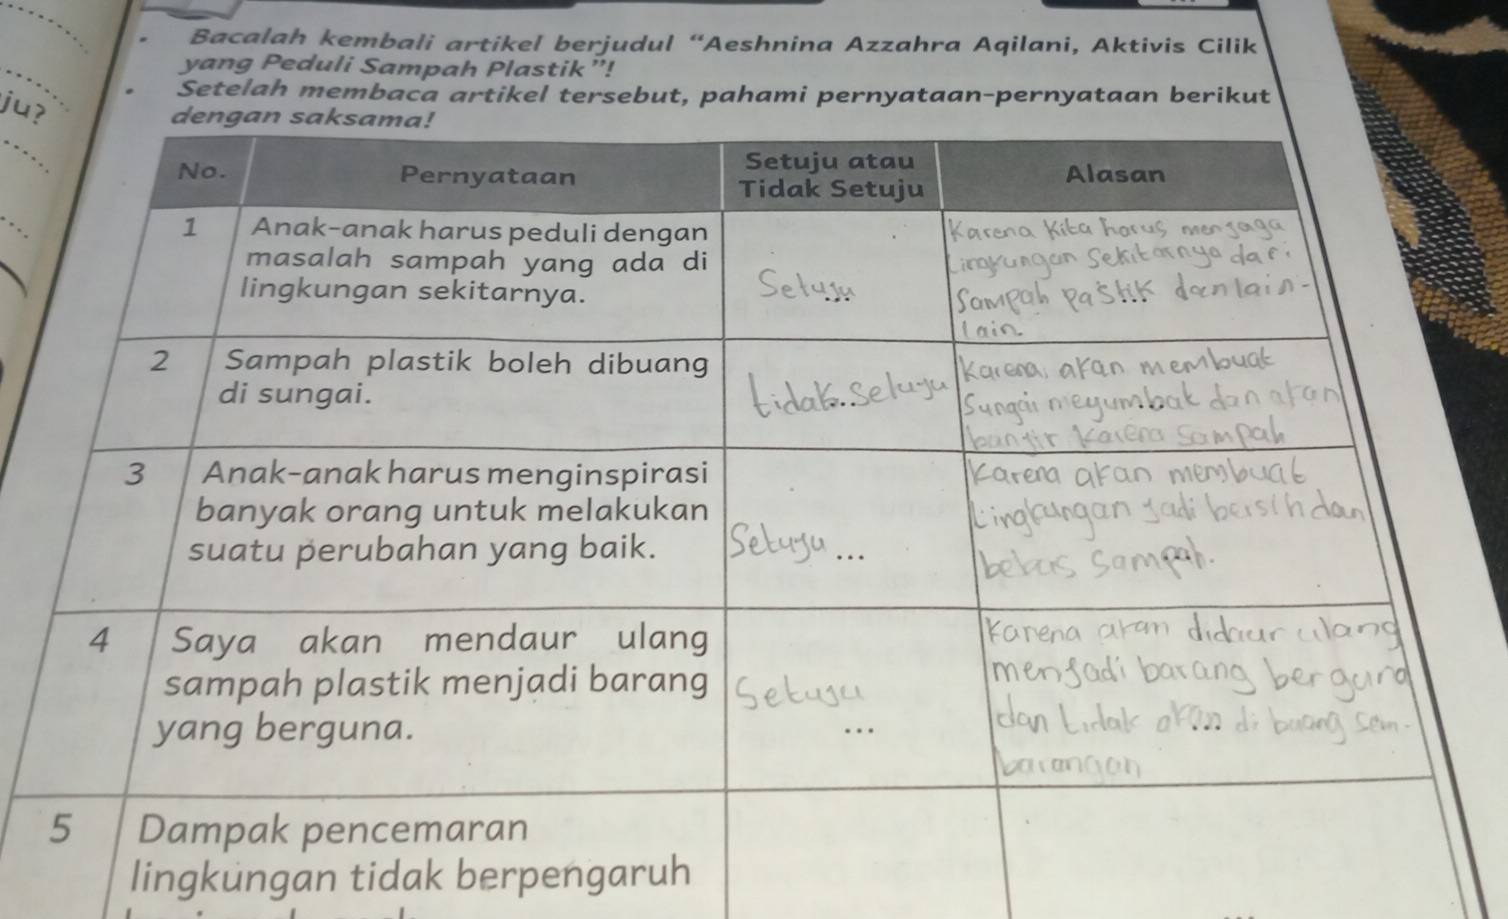 Bacalah kembali artikel berjudul “Aeshnina Azzahra Aqilani, Aktivis Cilik
yang Peduli Sampah Plastik”!
Setelah membaca artikel tersebut, pahami pernyataan-pernyataan berikut
dengan saksama!
ju?
No. Pernyataan Setuju atau Tidak Setuju Alasan
1 Anak-anak harus peduli dengan
masalah sampah yang ada di
lingkungan sekitarnya.
Setuju
Karena kita harus menjaga
Lingkungan sekitarnya dari
sampah pastik dan lain-
lain.
2 Sampah plastik boleh dibuang
di sungai.
tidak setuju
Karena akan membuat
sungai meyumbak dan akan
banjir karena sampah
3 Anak-anak harus menginspirasi
banyak orang untuk melakukan
suatu perubahan yang baik.
Setuju ...
Karena akan membuat
Lingkungan jadi bersih dan
bebas sampah.
4 Saya akan mendaur ulang
sampah plastik menjadi barang
yang berguna.
Setuju
...
Karena akan didaur ulang
menjadi barang berguna
dan tidak akan di buang sem-
barangan
5 Dampak pencemaran
lingkungan tidak berpengaruh